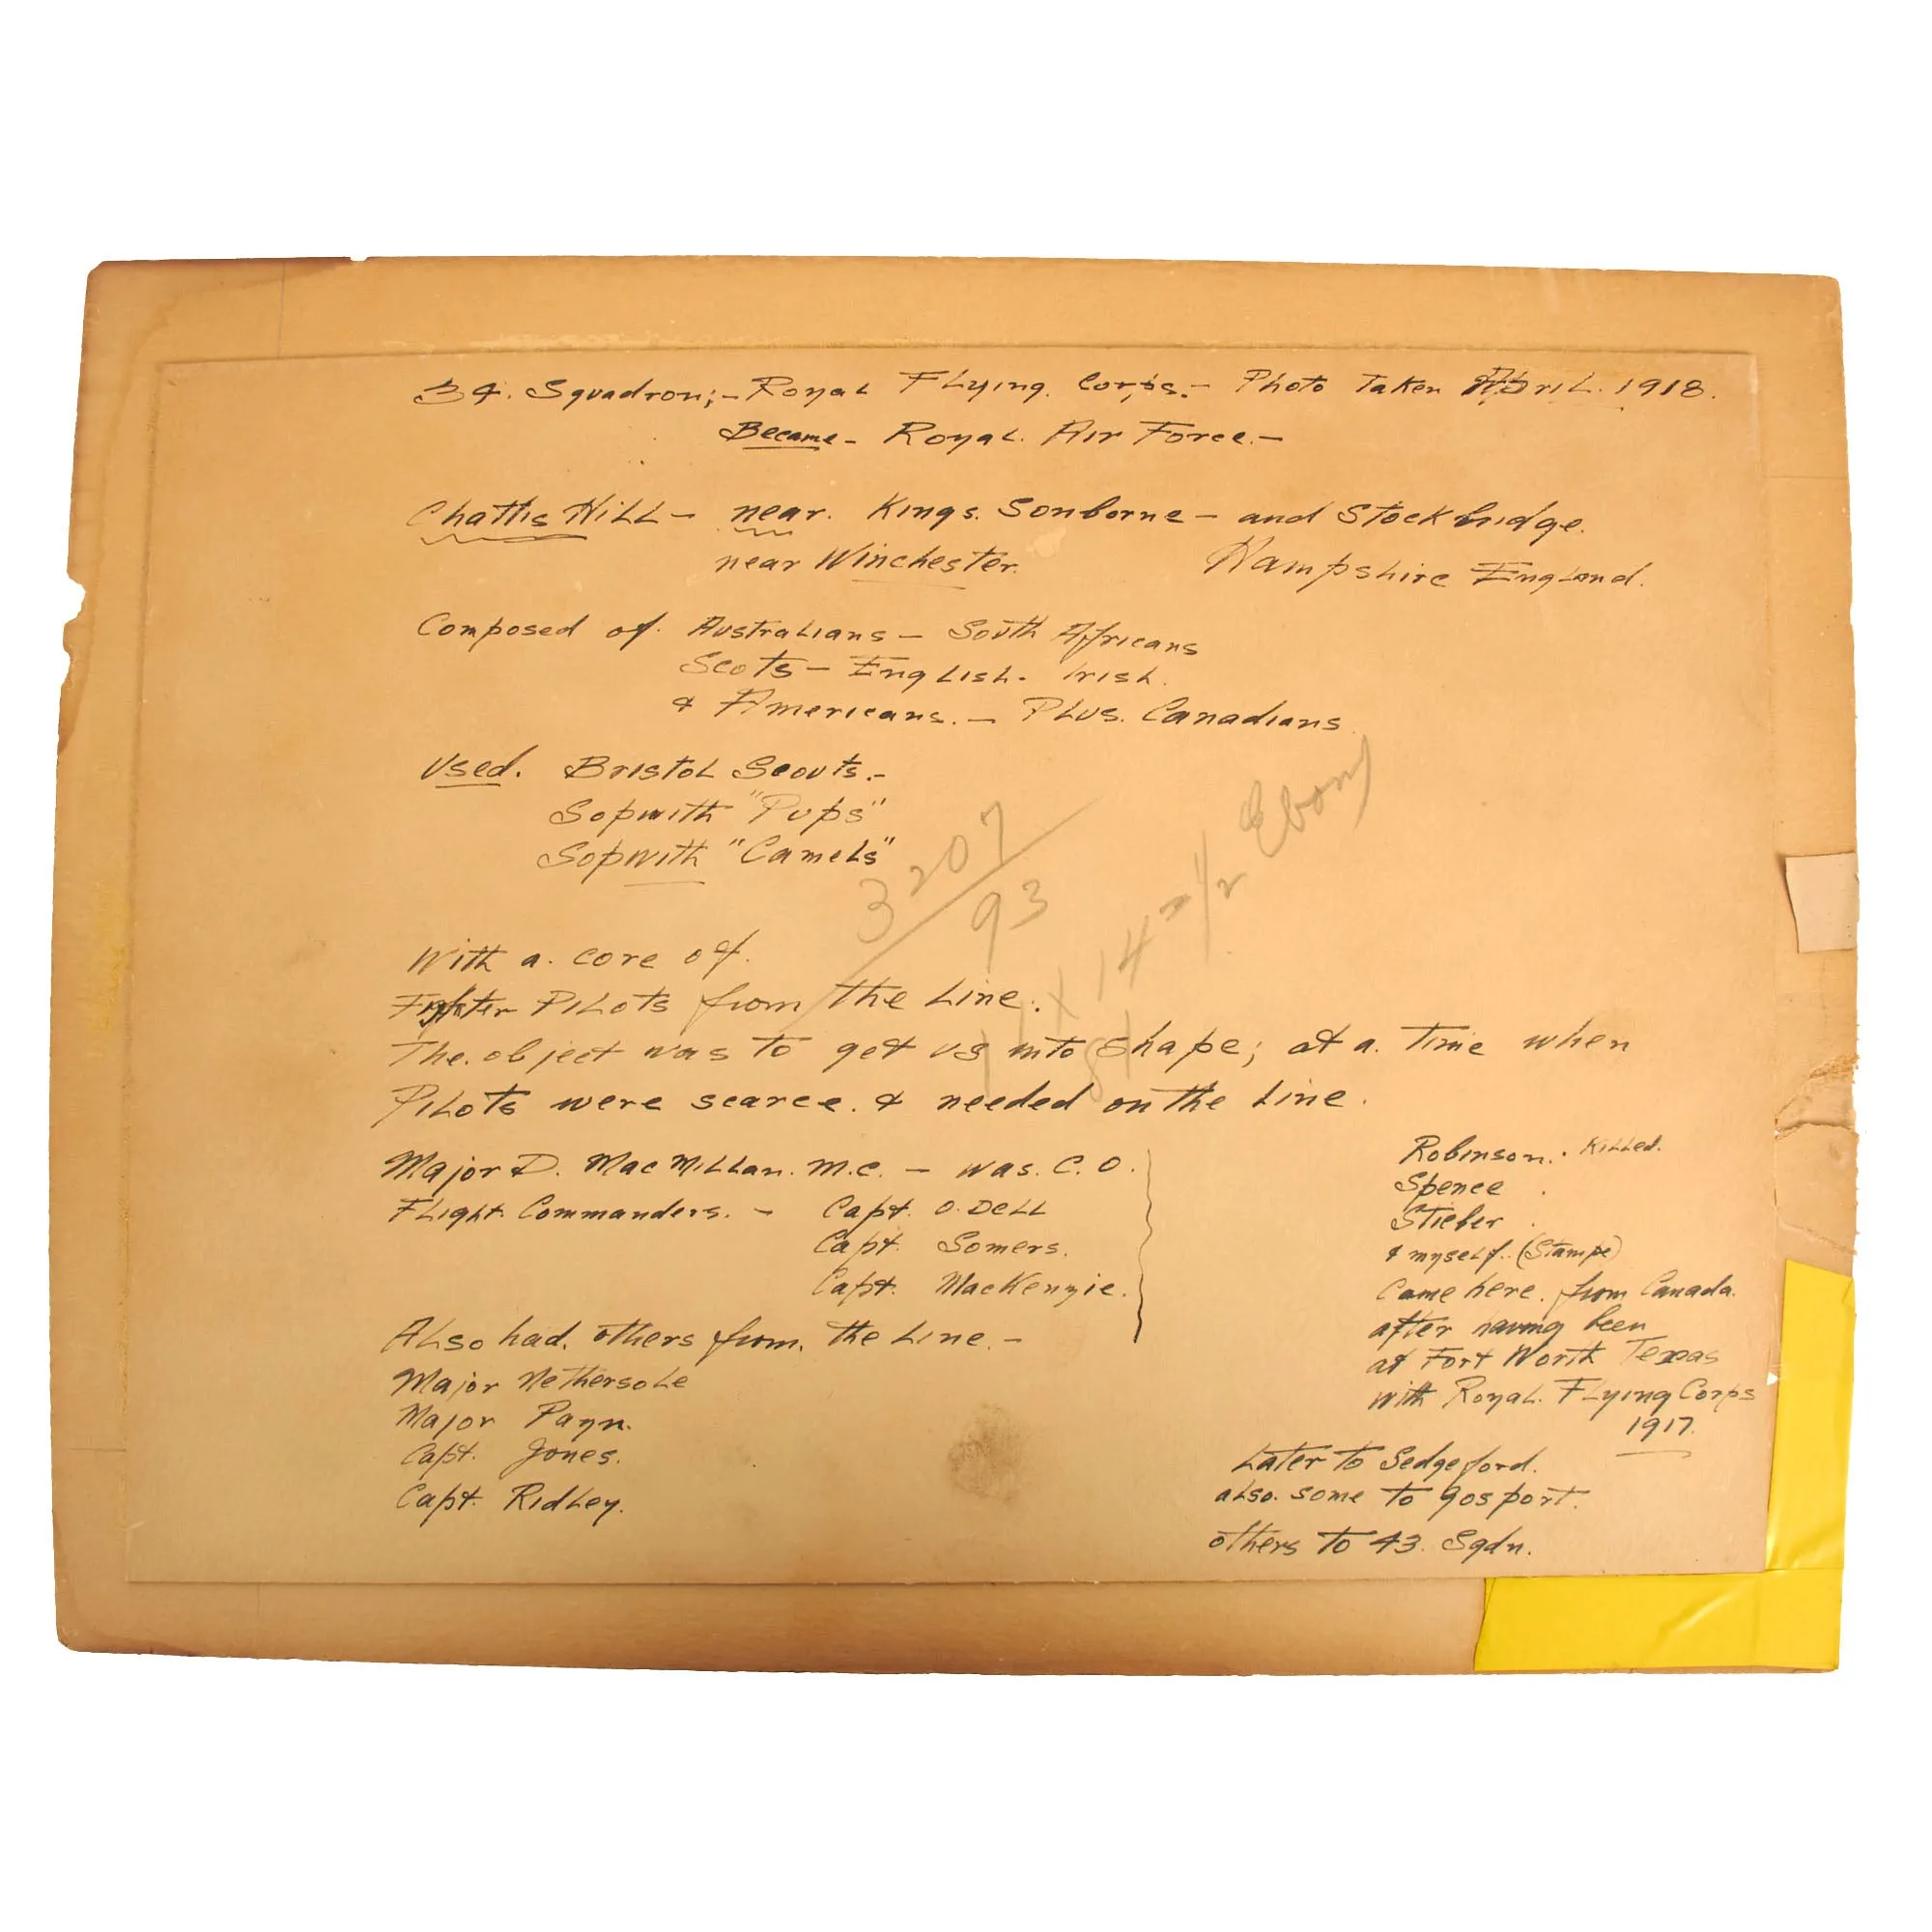 34. Squadron;- Royal Flying Corps.- Photo Taken April. 1918.
Became- Royal. Air Force.-
Chattis Hill- near. Kings. Sonborne- and Stockbridge.
near Winchester. Hampshire England.
Composed of. Australians- South Africans
Scots- English- Irish.
& Americans.- Plus. Canadians
Used. Bristol Scouts.-
Sopwith "Pups"
Sopwith "Camels"
3207
93
11 x 14 - 1/2 Ebony
With a. core of.
Fighter Pilots from the Line.
The. object was to get us into shape; at a. Time when
Pilots were scarce. & needed on the Line.
Major D. MacMillan. M.C. - was. C.O.
Flight Commanders. - Capt. O.Dell
Capt. Somers.
Capt. MacKenzie.
Also had. others from. the Line.-
Major Nethersole
Major Payn.
Capt. Jones.
Capt. Ridley.
Robinson. Killed.
Spence
Stieber
& myself. (Stampe)
Came here. from Canada.
after having been
at Fort Worth Texas
with Royal. Flying Corps
1917.
Later to Sedgeford.
also. some to Gosport.
others to 43. Sqdn.